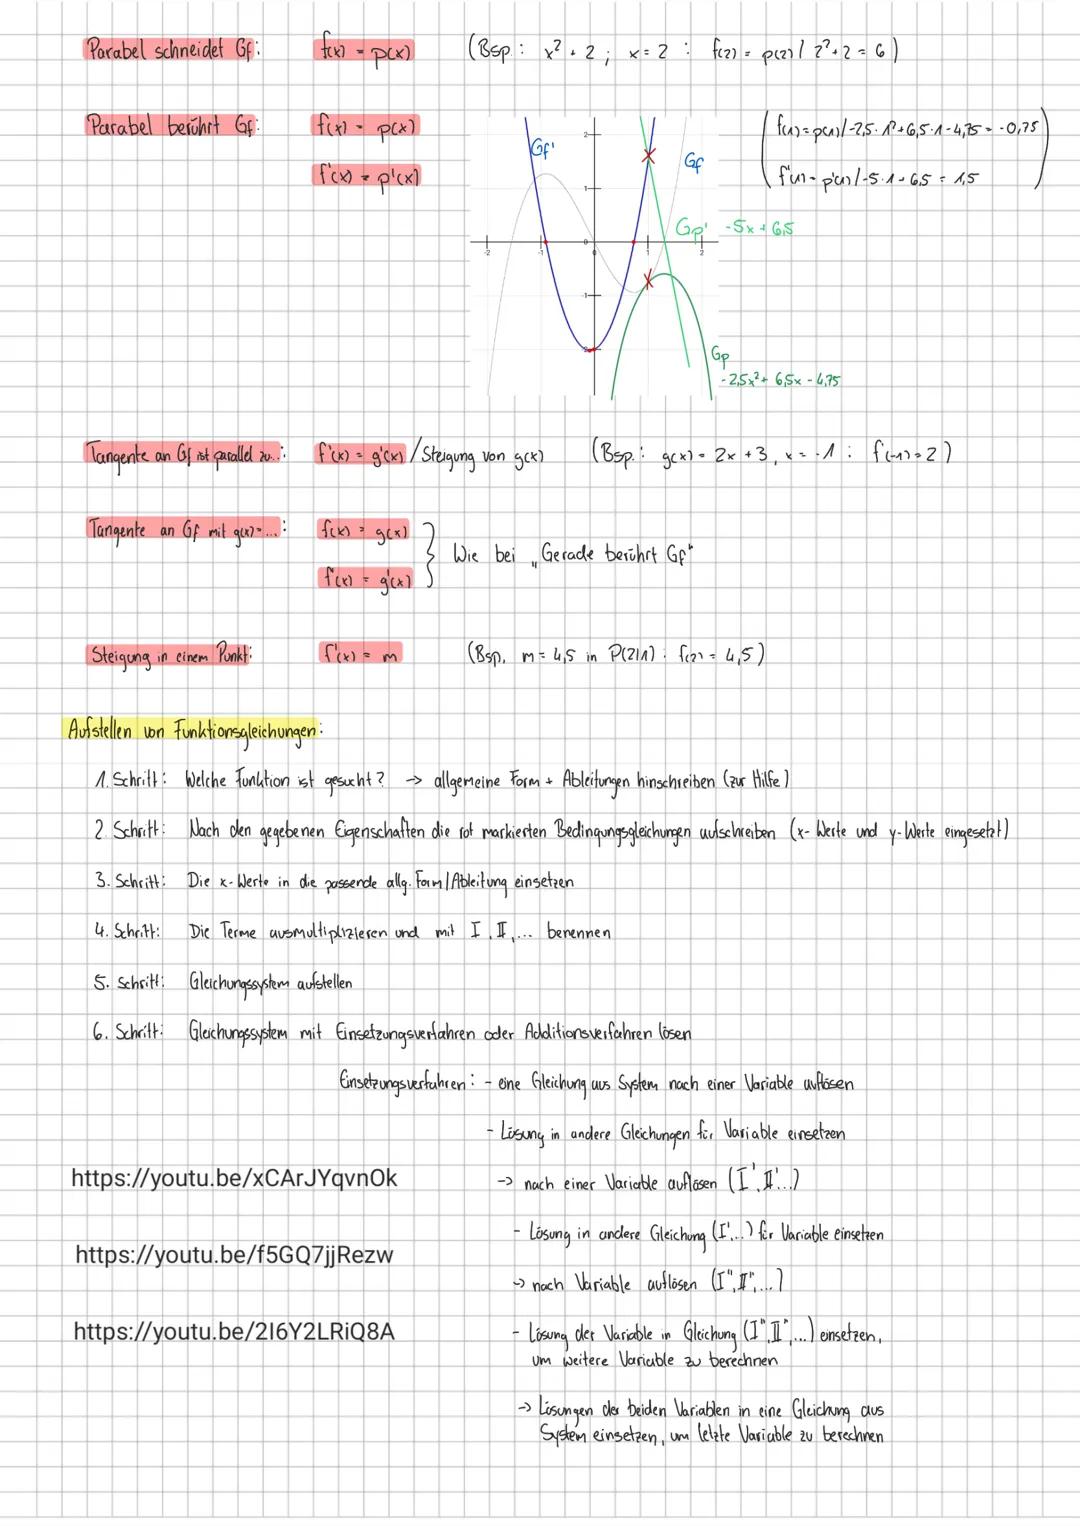 Parabel schneidet Gf: f(x) = p(x) (Bsp.: x² + 2 ; x = 2 : f(2) = p(2) / 2²+2 = 6)
Parabel berührt Gf: f(x) = p(x) (f(1) = p(1) / -2,5 · 1² + 6,5 · 1 - 4,75 = -0,75
f'(x) = p'(x) f'(1) = p'(1) / -5 · 1 + 6,5 = 1,5)
Gf' Gf
Gp' -5x + 6,5
Gp
-2,5x² + 6,5x - 4,75
2
1
-2 -1 0 0 1 2
-1
-2
Tangente an Gf ist parallel zu...: f'(x) = g'(x) / Steigung von g(x) (Bsp.: g(x) = 2x + 3, x = -1 : f'(-1) = 2)
Tangente an Gf mit g(x) = ...: f(x) = g(x)
f'(x) = g'(x) } Wie bei „Gerade berührt Gf"
Steigung in einem Punkt: f'(x) = m (Bsp. m = 4,5 in P(2|1) : f(2) = 4,5)
Aufstellen von Funktionsgleichungen:
1. Schritt: Welche Funktion ist gesucht? -> allgemeine Form + Ableitungen hinschreiben (zur Hilfe)
2. Schritt: Nach den gegebenen Eigenschaften die rot markierten Bedingungsgleichungen aufschreiben (x-Werte und y-Werte eingesetzt)
3. Schritt: Die x-Werte in die passende allg. Form/Ableitung einsetzen
4. Schritt: Die Terme ausmultiplizieren und mit I, II, ... benennen
5. Schritt: Gleichungssystem aufstellen
6. Schritt: Gleichungssystem mit Einsetzungsverfahren oder Additionsverfahren lösen
Einsetzungsverfahren: - eine Gleichung aus System nach einer Variable auflösen
- Lösung in andere Gleichungen für Variable einsetzen
https://youtu.be/xCArJYqvnOk -> nach einer Variable auflösen (I', II'...)
- Lösung in andere Gleichung (I',...) für Variable einsetzen
https://youtu.be/f5GQ7jjRezw
-> nach Variable auflösen (I", II", ...)
https://youtu.be/2I6Y2LRiQ8A - Lösung der Variable in Gleichung (I", II", ...) einsetzen,
um weitere Variable zu berechnen
-> Lösungen der beiden Variablen in eine Gleichung aus
System einsetzen, um letzte Variable zu berechnen